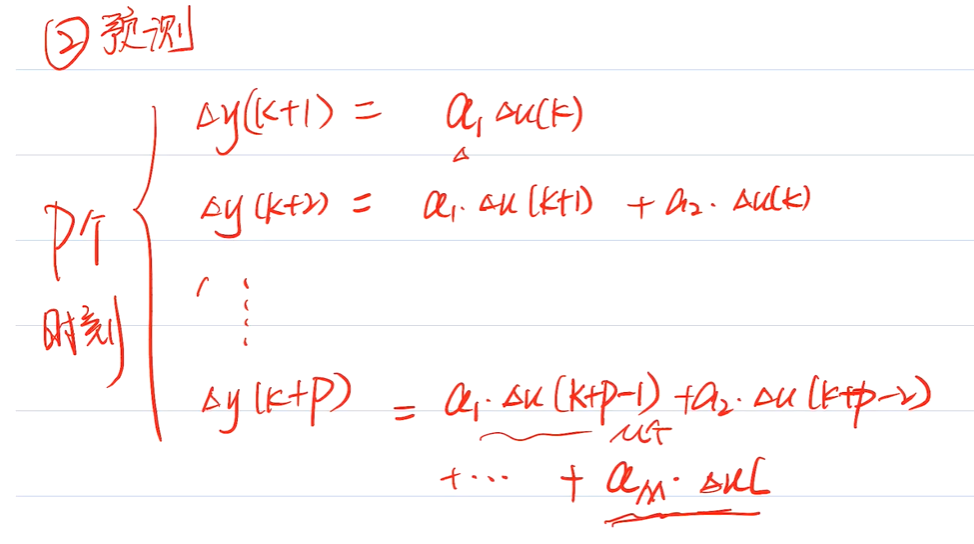 ② 预测
Δy(k+1) = a₁ Δu(k)
Δ
Δy(k+2) = a₁·Δu(k+1) + a₂·Δu(k)
P个
⋮
时刻
Δy(k+P) = a₁·Δu(k+P-1) + a₂·Δu(k+P-2)
M个
+ ··· + a_M·Δu(